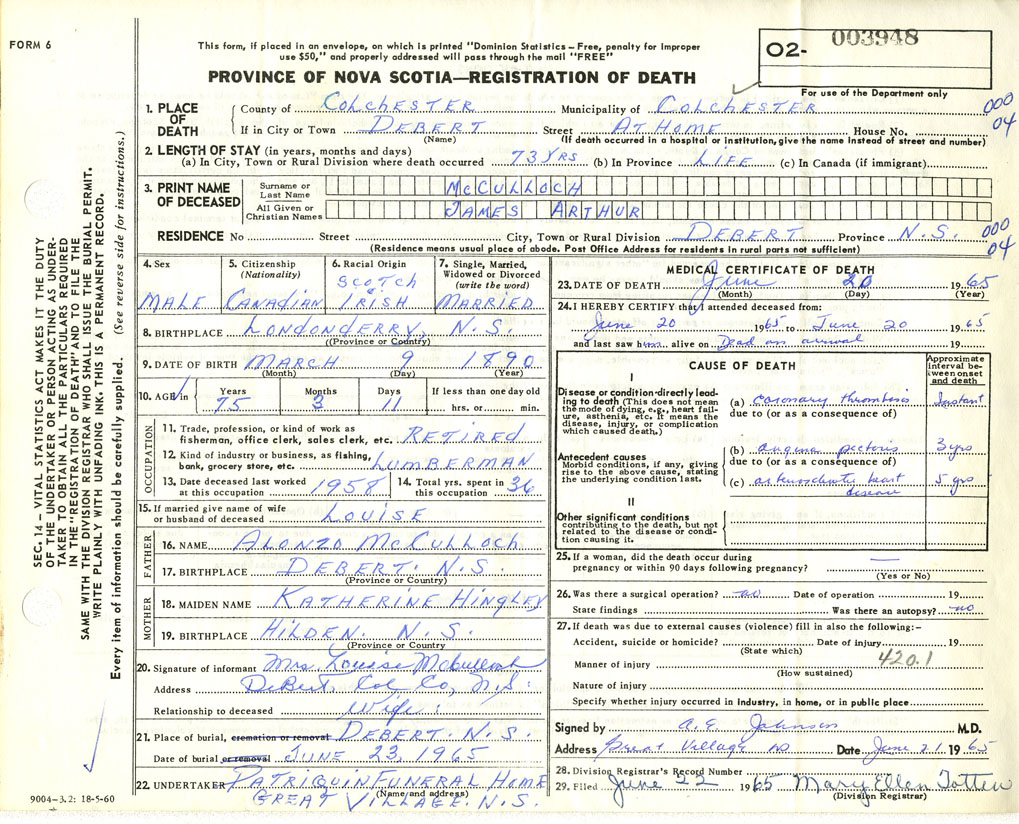 FORM 6
This form, if placed in an envelope, on which is printed "Dominion Statistics – Free, penalty for improper
use $50," and properly addressed will pass through the mail "FREE"
O2- 003948
For use of the Department only
PROVINCE OF NOVA SCOTIA—REGISTRATION OF DEATH
1. PLACE OF DEATH
County of COLCHESTER Municipality of COLCHESTER 000
If in City or Town DEBERT Street AT HOME House No. 04
(Name) (If death occurred in a hospital or institution, give the name instead of street and number)
2. LENGTH OF STAY (in years, months and days)
(a) In City, Town or Rural Division where death occurred 73 YRS (b) In Province LIFE (c) In Canada (if immigrant)
3. PRINT NAME OF DECEASED
Surname or Last Name McCULLOCH
All Given or Christian Names JAMES ARTHUR
RESIDENCE No Street City, Town or Rural Division DEBERT Province N.S. 000
(Residence means usual place of abode. Post Office Address for residents in rural parts not sufficient) 04
4. Sex MALE
5. Citizenship (Nationality) CANADIAN
6. Racial Origin SCOTCH IRISH
7. Single, Married, Widowed or Divorced (write the word) MARRIED
8. BIRTHPLACE LONDONDERRY, N.S.
(Province or Country)
9. DATE OF BIRTH MARCH 9 1890
(Month) (Day) (Year)
10. AGE in Years Months Days If less than one day old
75 3 11 hrs. or min.
OCCUPATION
11. Trade, profession, or kind of work as
fisherman, office clerk, sales clerk, etc. RETIRED
12. Kind of industry or business, as fishing,
bank, grocery store, etc. LUMBERMAN
13. Date deceased last worked
at this occupation 1958
14. Total yrs. spent in
this occupation 36
15. If married give name of wife
or husband of deceased LOUISE
FATHER
16. NAME ALONZO McCULLOCH
17. BIRTHPLACE DEBERT. N.S.
(Province or Country)
MOTHER
18. MAIDEN NAME KATHERINE HINGLEY
19. BIRTHPLACE HILDEN. N.S.
(Province or Country)
20. Signature of informant Mrs. Louise McCulloch
Address DeBert. Col Co, N.S.
Relationship to deceased Wife.
21. Place of burial, cremation or removal DEBERT. N.S.
Date of burial or removal JUNE 23, 1965
22. UNDERTAKER PATRIQUIN FUNERAL HOME
(Name and address)
GREAT VILLAGE. N.S.
MEDICAL CERTIFICATE OF DEATH
23. DATE OF DEATH June 20 1965
(Month) (Day) (Year)
24. I HEREBY CERTIFY that I attended deceased from:
June 20 1965 to June 20 1965
and last saw him alive on Dead on arrival 19
CAUSE OF DEATH
Approximate interval between onset and death
I
Disease or condition directly leading
to death (This does not mean
the mode of dying, e.g., heart failure,
asthenia, etc. It means the
disease, injury, or complication
which caused death.)
(a) coronary thrombosis Instant
due to (or as a consequence of)
Antecedent causes
Morbid conditions, if any, giving
rise to the above cause, stating
the underlying condition last.
(b) angina pectoris 3 yrs
due to (or as a consequence of)
(c) arteriosclerotic heart disease 5 yrs
II
Other significant conditions
contributing to the death, but not
related to the disease or condition
causing it.
25. If a woman, did the death occur during
pregnancy or within 90 days following pregnancy? —
(Yes or No)
26. Was there a surgical operation? no Date of operation 19
State findings Was there an autopsy? no
27. If death was due to external causes (violence) fill in also the following:-
Accident, suicide or homicide? Date of injury 19
(State which) 420.1
Manner of injury
(How sustained)
Nature of injury
Specify whether injury occurred in industry, in home, or in public place
Signed by A. E. Johnson M.D.
Address Great Village NS Date June 21 1965
28. Division Registrar's Record Number
29. Filed June 22 1965 Mary Ellen Totten
(Division Registrar)
SEC. 14 – VITAL STATISTICS ACT MAKES IT THE DUTY
OF THE UNDERTAKER OR PERSON ACTING AS UNDERTAKER
TO OBTAIN ALL THE PARTICULARS REQUIRED
IN THE "REGISTRATION OF DEATH" AND TO FILE THE
SAME WITH THE DIVISION REGISTRAR WHO SHALL ISSUE THE BURIAL PERMIT.
WRITE PLAINLY WITH UNFADING INK. THIS IS A PERMANENT RECORD.
Every item of information should be carefully supplied. (See reverse side for instructions.)
9004–3.2: 18-5-60